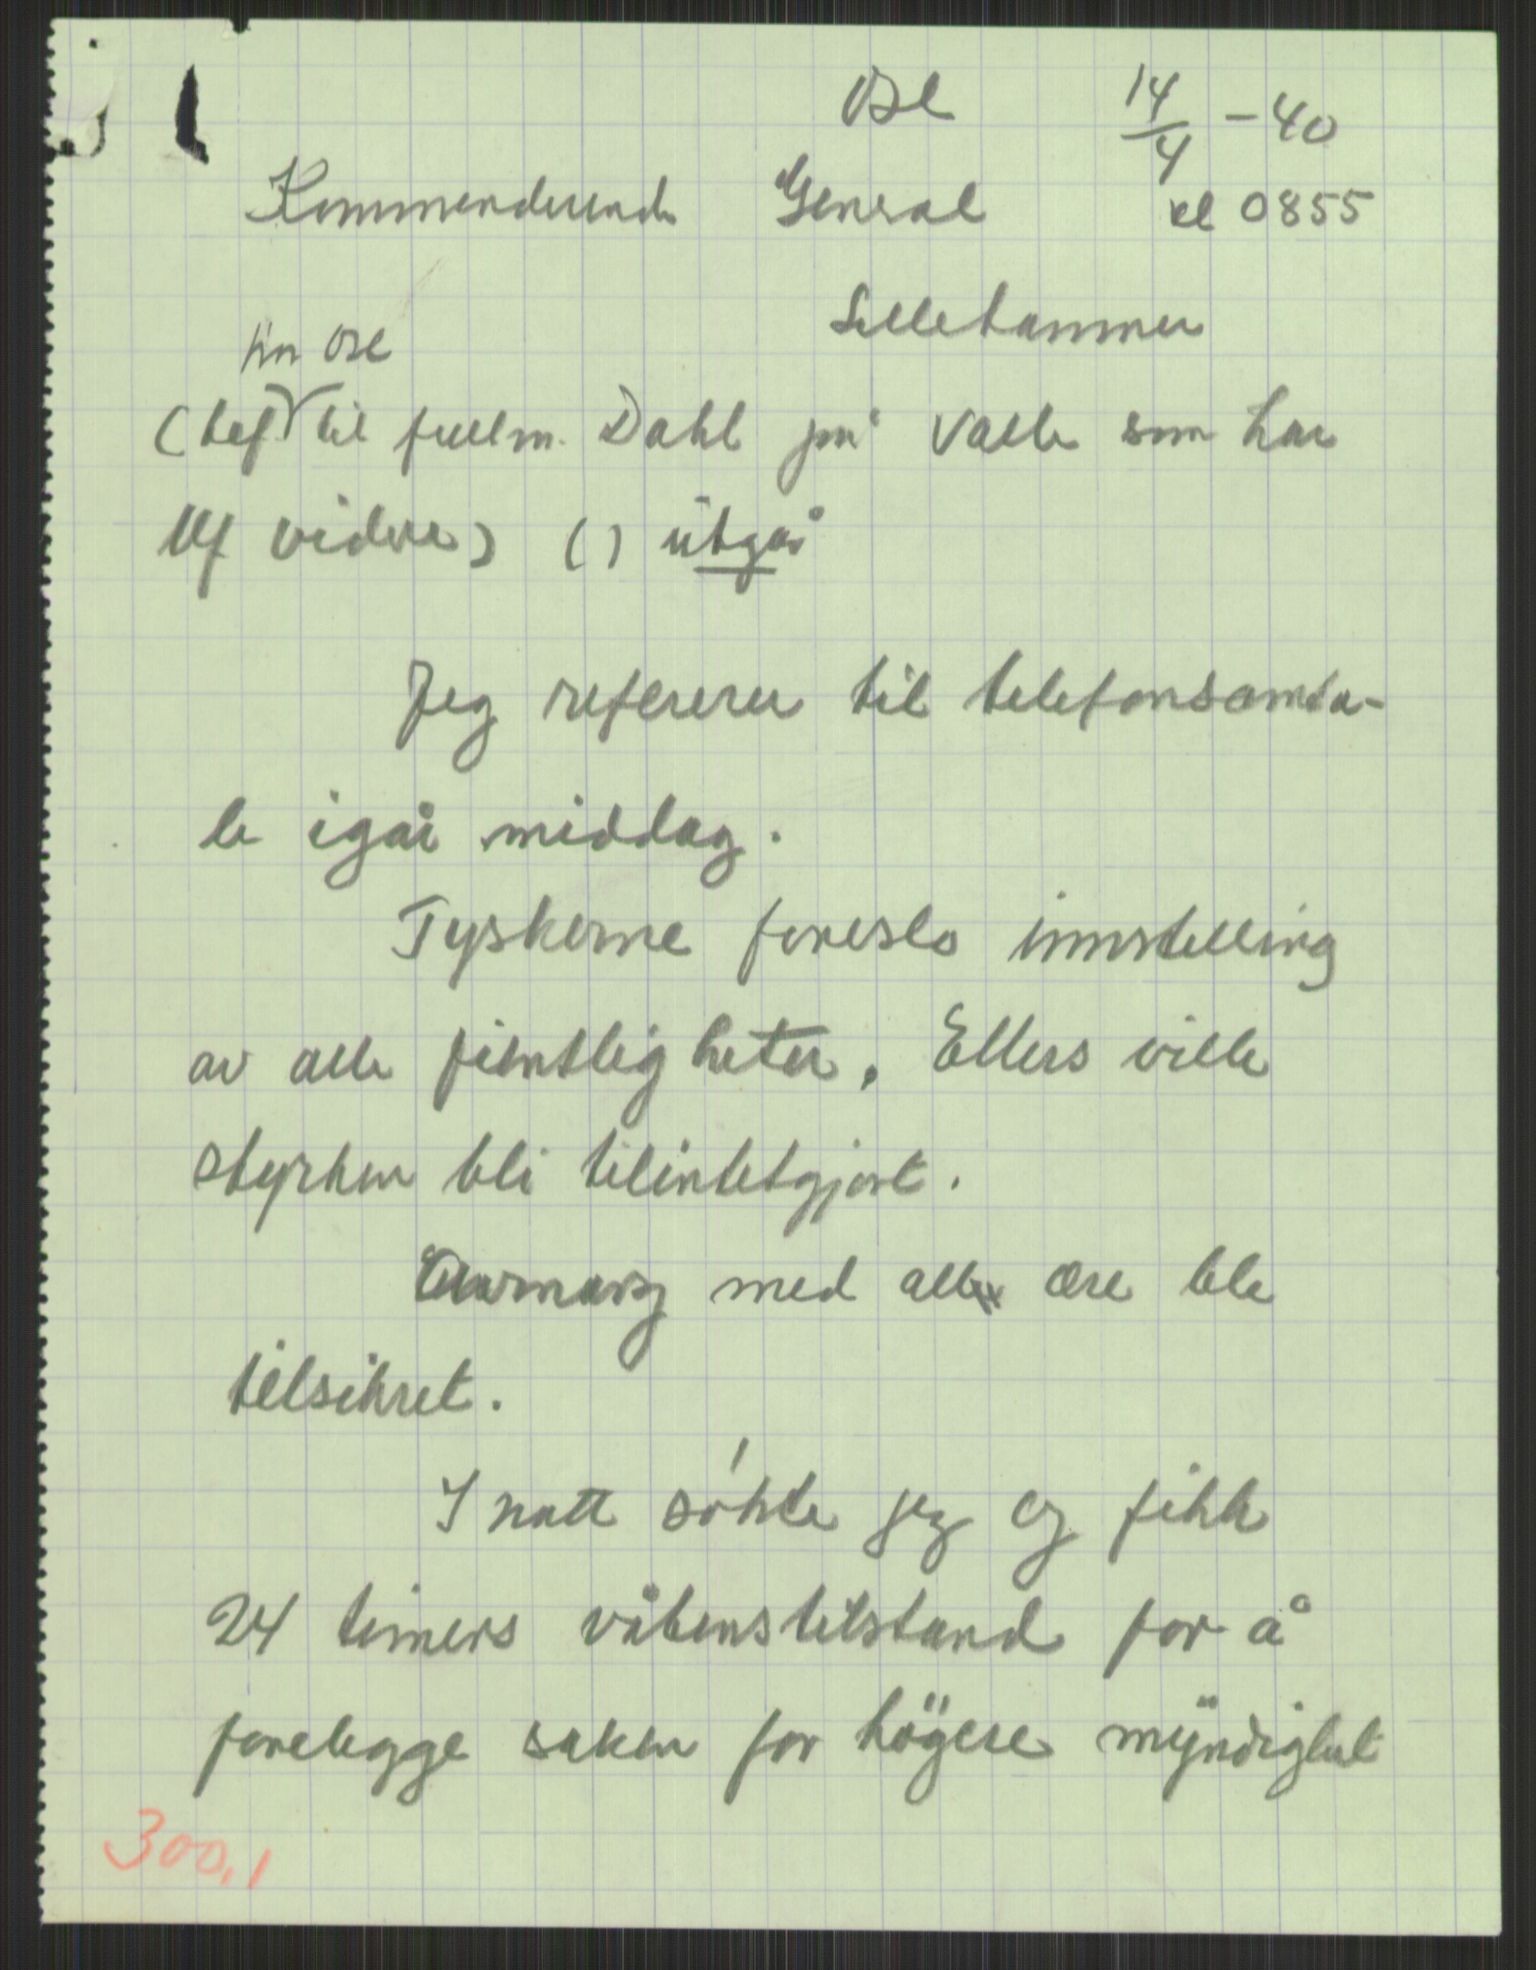 Ose 14/4 - 40
Kommenderende General kl 0855
Lillehammer
fra Ose
(tlf til fullm. Dahl på Valle som har
tlf videre) ( ) utgår
Jeg refererer til telefonsamta-
le igår middag.
Tyskerne foreslo innstilling
av alle fientligheter. Ellers ville
styrken bli tilintetgjort.
med alle ære ble
tilsikret.
I natt søkte jeg og fikk
24 timers våbenstilstand for å
forelegge saken for högere myndighet
300,1